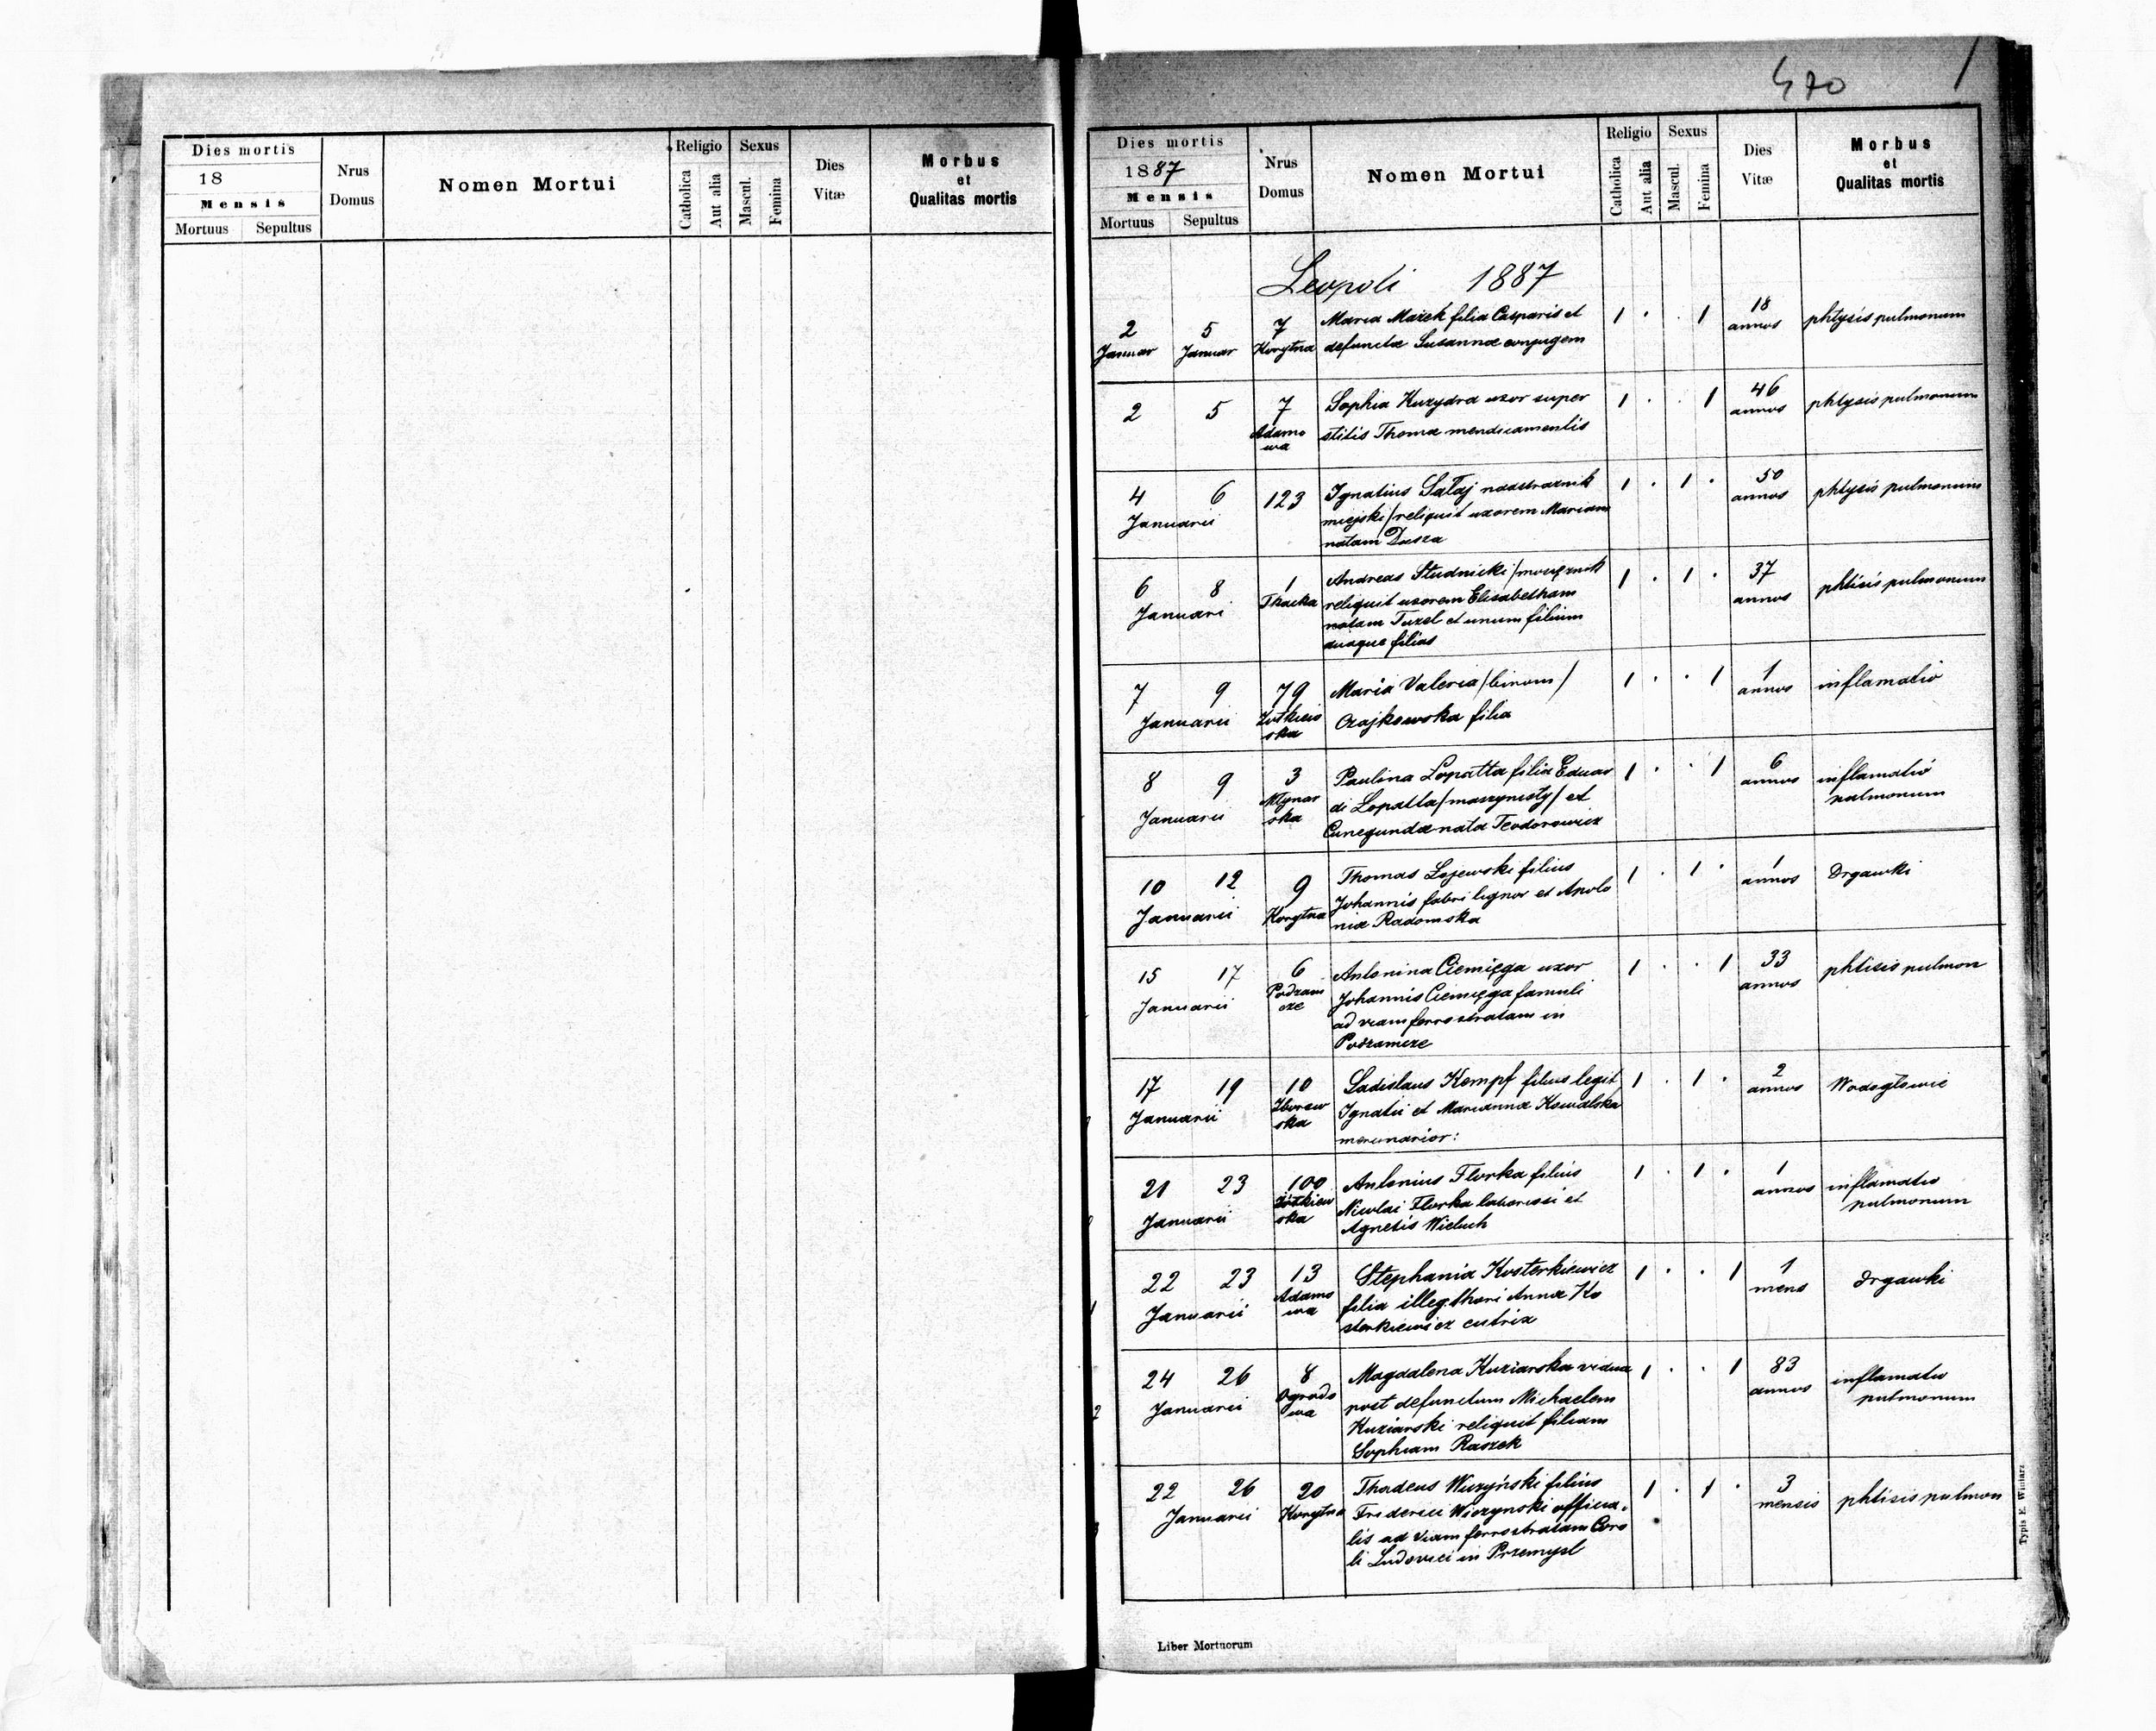 Dies mortis
18
Mensis
Mortuus Sepultus
Nrus
Domus
Nomen Mortui
Religio
Catholica
Aut alia
Sexus
Mascul.
Femina
Dies
Vitæ
Morbus
et
Qualitas mortis
470 /
Dies mortis
1887
Mensis
Mortuus Sepultus
Nrus
Domus
Nomen Mortui
Religio
Catholica
Aut alia
Sexus
Mascul.
Femina
Dies
Vitæ
Morbus
et
Qualitas mortis
Leopoli 1887
2 5 7 Maria Mazek filia Casparis et 1 . . 1 18 phtysis pulmonum
Januar Januar Korytna defunctæ Susannæ conjugem annos
2 5 7 Sophia Kuzydra uxor super 1 . . 1 46 phtysis pulmonum
Adamo stitis Thomæ mendicamentis annos
wa
4 6 123 Ignatius Sałaj nadstraznik 1 . 1 . 50 phtysis pulmonum
Januarii miejski / reliquit uxorem Mariam annos
natam Dusza
6 8 1 Andreas Studnicki / mosiężnik 1 . 1 . 37 phtisis pulmonum
Januari Tkacka reliquit uxorem Elisabetham annos
natam Tuzel et unum filium
duasque filias
7 9 79 Maria Valeria / binom / 1 . . 1 1 inflamatio
Januarii Żółkiew Czajkowska filia annos
ska
8 9 3 Paulina Lopatta filia Eduar 1 . . 1 6 inflamatio
Januarii Młynar di Lopatta / maszynisty / et annos pulmonum
ska Cunegundæ nata Teodorowicz
10 12 9 Thomas Lojewski filius 1 . 1 . 1 Drgawki
Januarii Korytna Johannis fabri lignar et Apolo annos
niæ Radomska
15 17 6 Antonina Ciemięga uxor 1 . . 1 33 phtisis pulmon
Januarii Podzam Johannis Ciemięga famuli annos
cze ad viam ferro stratam in
Podzamcze
17 19 10 Ladislaus Kempf filius legit 1 . 1 . 2 Wodogłowie
Januarii Zborow Ignatii et Mariannæ Kowalska annos
ska mercenarior:
21 23 100 Antonius Florka filius 1 . 1 . 1 inflamatio
Januarii Żółkiew Nicolai Florka laboriosi et annos pulmonum
ska Agnetis Wieluch
22 23 13 Stephania Kosterkiewicz 1 . . 1 1 drgawki
Januarii Adamo filia illeg. thori Annæ Ko mens
wa sterkiewicz
24 26 8 Magdalena Kuziarska vidua 1 . . 1 83 inflamatio
Januarii Ogrodo post defunctum Michaelem annos pulmonum
wa Kuziarski reliquit filiam
Sophiam Raszek
22 26 20 Thadeus Wiczyński filius 1 . 1 . 3 phtisis pulmon
Januarii Korytna Friderici Wiczynski officia- mensis
lis ad viam ferro stratam Caro
li Ludovici in Przemysl
Typis E. Winiarz
Liber Mortuorum